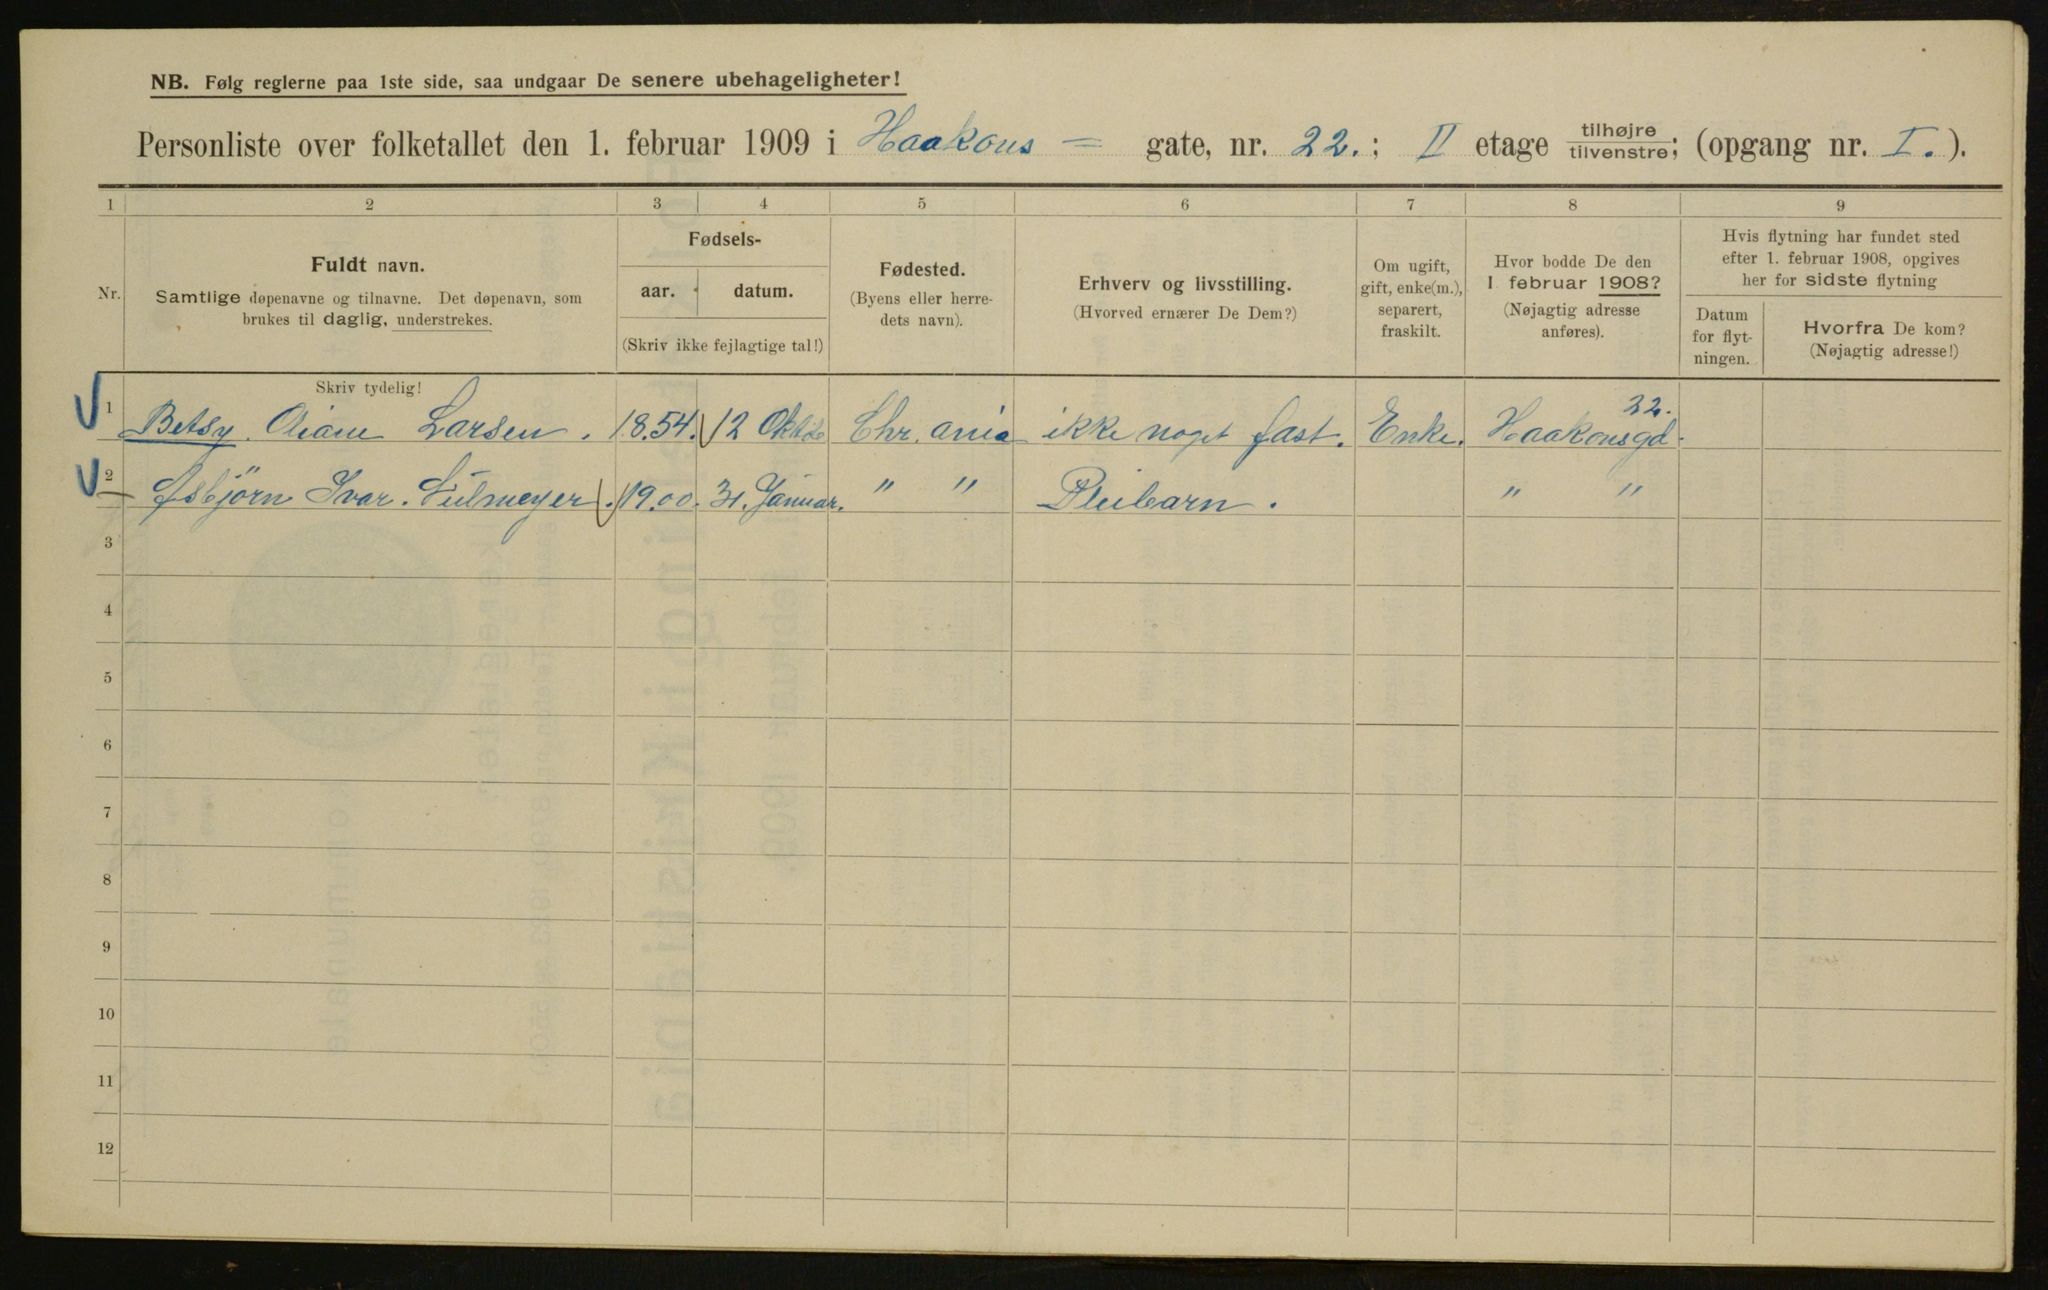 NB. Følg reglerne paa 1ste side, saa undgaar De senere ubehageligheter!
Personliste over folketallet den 1. februar 1909 i Haakons = gate, nr. 22.; II etage tilhøjre tilvenstre; (opgang nr. I.).
1 2 3 4 5 6 7 8 9
Nr.
Fuldt navn.
Samtlige døpenavne og tilnavne. Det døpenavn, som
brukes til daglig, understrekes.
Skriv tydelig!
Fødsels-
aar. datum.
(Skriv ikke fejlagtige tal!)
Fødested.
(Byens eller herre-
dets navn).
Erhverv og livsstilling.
(Hvorved ernærer De Dem?)
Om ugift,
gift, enke(m.),
separert,
fraskilt.
Hvor bodde De den
1. februar 1908?
(Nøjagtig adresse
anføres).
Hvis flytning har fundet sted
efter 1. februar 1908, opgives
her for sidste flytning
Datum
for flyt-
ningen.
Hvorfra De kom?
(Nøjagtig adresse!)
1 Betsy. Larsen. 1854. 12 Chr. ania ikke noget fast. Enke. Haakonsgd. 22.
2 Asbjörn Ivar. 1900. 31. Januar. " " Pleibarn. " "
3
4
5
6
7
8
9
10
11
12